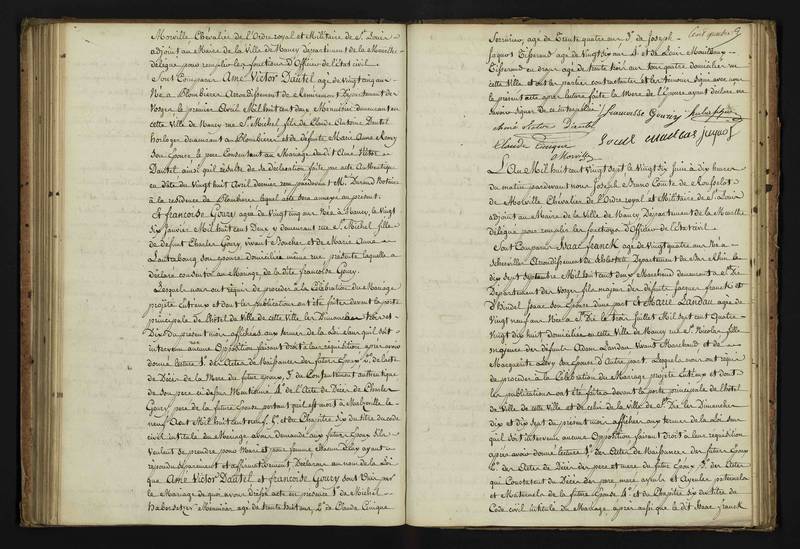 Morville Chevalier de l'Ordre royal et Militaire de St. Louis
adjoint au Maire de la Ville de Nancy Département de la Meurthe
délégué pour remplir les fonctions d'Officier de l'état civil
Sont Comparus Amé Victor Dautel agé de vingt cinq ans
Né a Plombières arrondissement de Remiremont Département des
Vosges le premier avril Mil huit cent deux Menuisier demeurant en
cette Ville de Nancy rue St. Michel fils de Claude Antoine Dautel
horloger demeurant au Plombières et de défunte Marie Anne Remy
Son Epouse le père Consentant au Mariage dudit Amé Victor
Dautel ainsi qu'il résulte de sa déclaration faite par acte authentique
en date du vingt huit avril dernier pardevant Me. Durand Notaire
à la résidence de Plombières lequel acte sera annexé au présent.
Et françoise Goury agée de vingt cinq ans Née à Nancy, le vingt
Six Janvier Mil huit cent Deux y demeurant rue St. Michel fille
de défunt Charles Goury, vivant Boucher et de Marie Anne
Lauterbourg son épouse domiciliée même rue, présente laquelle a
déclaré consentir au Mariage, de la dite françoise Goury.
Lesquels nous ont requis de procéder à la Célébration du Mariage
projeté entreux et dont les publications ont été faites devant la porte
principale de l'hôtel de Ville de cette Ville les Dimanches trois et
Dix du présent mois affichées aux termes de la Loi sans qu'il soit
intervenu aucune Opposition faisant droit à leur réquisition après avoir
donné lecture 1o. des Actes de Naissances des futurs Epoux, 2o. de l'acte
de Décès de la Mère du futur Epoux, 3o. du Consentement authentique
de son père ci dessus Mentionné 4o. de l'Acte de Décès de Charles
Goury père de la future Epouse portant qu'il est mort à Malzéville le
neuf Août Mil huit cent neuf, 5o. et du Chapitre Six du titre du code
civil intitulé du Mariage avons demandé aux futurs Epoux s'ils
veulent se prendre pour Mari et pour femme chacun d'eux ayant
répondu séparément et affirmativement Déclarons au nom de la Loi
que Amé Victor Dautel et françoise Goury sont Unis par
le Mariage de quoi avons dressé acte en présence 1o. de Michel
haberdetzer Menuisier agé de trente huit ans, 2o. de Claude Cunique
Serrurier, agé de Trente quatre ans 3o. de Joseph
Jaquot Tisserand agé de vingt six ans 4o. et de Louis
Tisserand en draps agé de trente trois ans tous quatre domiciliés en
cette Ville et ont les parties contractantes et les témoins signé avec nous
le présent acte après lecture faite la Mère de l'épouse ayant déclaré ne
savoir signer de ce interpellée
françoisse Goury
Amé Victor Dautel
Claude Cunique
Morville
L'An Mil huit cent vingt sept le vingt six Juin à dix heures
du matin pardevant nous Joseph Bruno Comte de
de Morville Chevalier de l'Ordre royal et Militaire de St. Louis
adjoint au Maire de la Ville de Nancy Département de la Meurthe
délégué pour remplir les fonctions d'Officier de l'état civil
Sont Comparus Isaac franck agé de vingt quatre ans Né a
Scherviller Arrondissement de Schlestatt Département du Bas Rhin le
dix sept Septembre Mil huit cent deux Marchand demeurant a St. Dié
Département des Vosges fils majeur de défunts Jacques franck et
d'Hindel Isaac Son Epouse d'une part et Marie Landau agée de
vingt neuf ans Née a St. Dié le trois Juillet Mil sept Cent Quatre
vingt dix huit domiciliée en cette Ville de Nancy rue St. Nicolas fille
majeure des défunts Aaron Landau vivant Marchand et de
Marguerite Lévy son Epouse d'Autre part. Lesquels nous ont requis
de procéder à la Célébration du Mariage projeté entreux et dont
les publications ont été faites devant la porte principale de l'hôtel
de Ville de cette Ville et de celui de la Ville de St. Dié les Dimanches
dix et dix sept du présent mois affichées aux termes de la Loi sans
qu'il soit intervenu aucune Opposition faisant droit à leur réquisition
après avoir donné lecture 1o. des Actes de Naissances des futurs Epoux
2o. des Actes de Décès des père et mère du futur Epoux 3o. des Actes
qui Constatent du Décès des père mère ayeuls et Ayeules paternels
et Maternels de la future Epouse 4o. et du Chapitre Six du titre du
Code civil intitulé du Mariage, après aussi que le dit Isaac franck